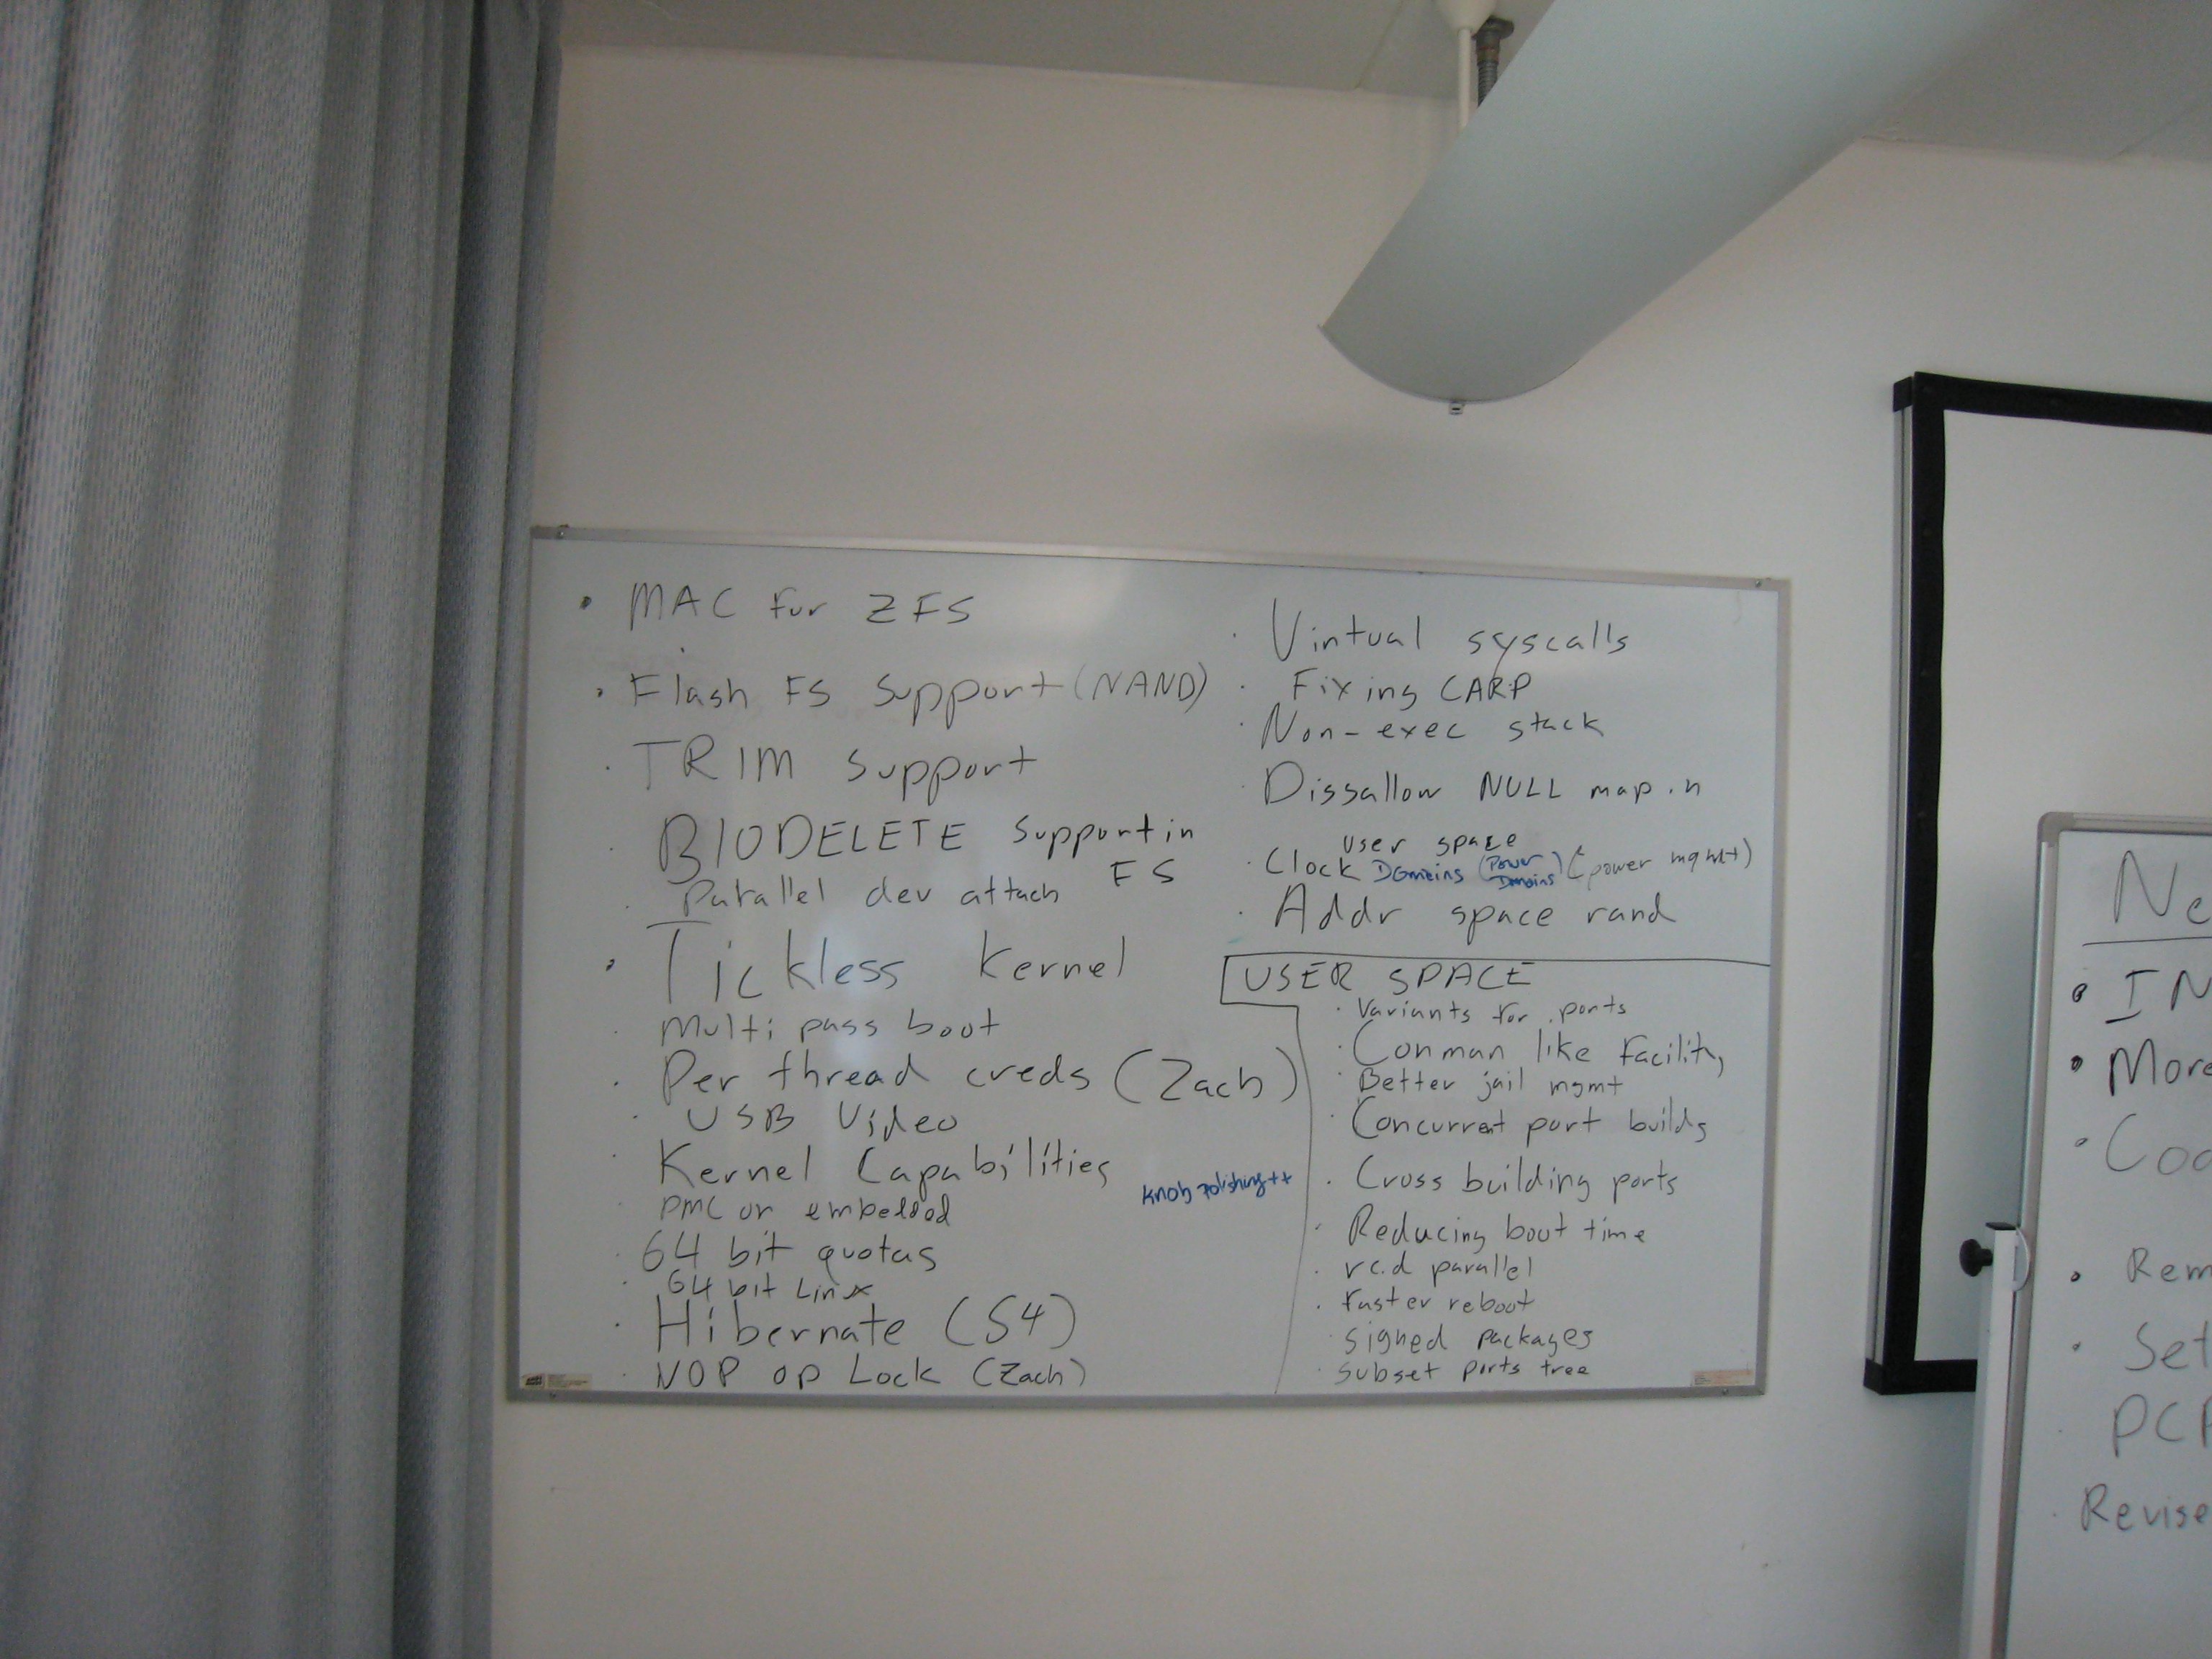 · MAC For ZFS
· Flash FS Support (NAND)
· TRIM Support
· BIODELETE Support in
FS
· Parallel dev attach
· Tickless Kernel
· Multi pass boot
· Per thread creds (Zach)
· USB Video
· Kernel Capabilities
· PMC on embedded
· 64 bit quotas
· 64 bit Linux
· Hibernate (S4)
· VOP op Lock (Zach)
knob polishing++
· Virtual syscalls
· Fixing CARP
· Non-exec stack
· Dissallow NULL map.n
user space
· Clock Domains (Power Domains) (power mgmt)
· Addr space rand
USER SPACE
· Variants for ports
· Conman like Facility
· Better jail mgmt
· Concurrent port builds
· Cross building ports
· Reducing boot time
· rc.d parallel
· Faster reboot
· signed packages
· subset ports tree
Ne
· IN
· More
· Coo
· Rem
· Set
· PCP
· Revise